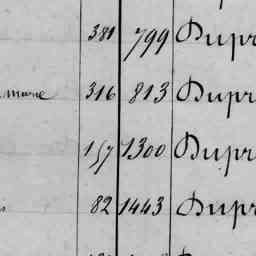 381 799 Dupr
316 813 Dupr
157 1300 Dupr
82 1443 Dupr